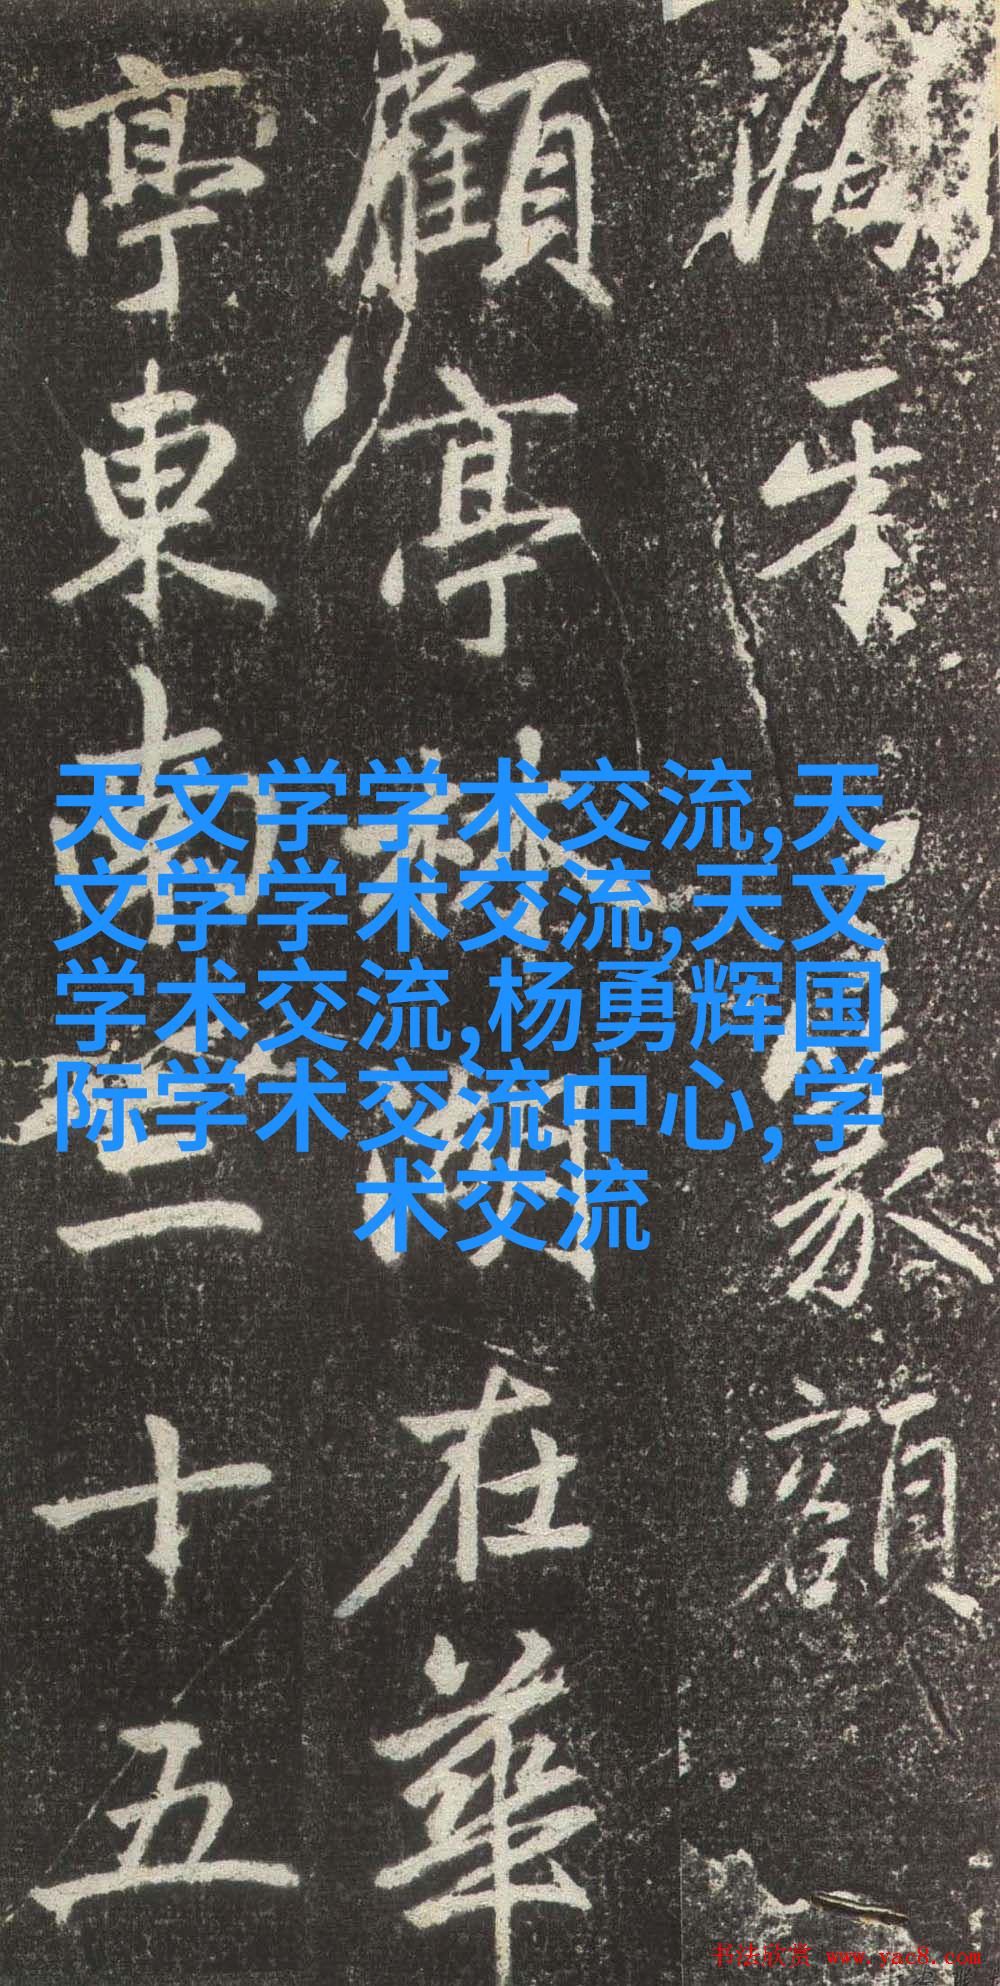 篆額
顧亭林湖在華
亭東南三十五
天文学学术交流,天
文学学术交流,天文
学术交流,杨勇辉国
际学术交流中心,学
术交流
书法欣赏 www.yac8.com